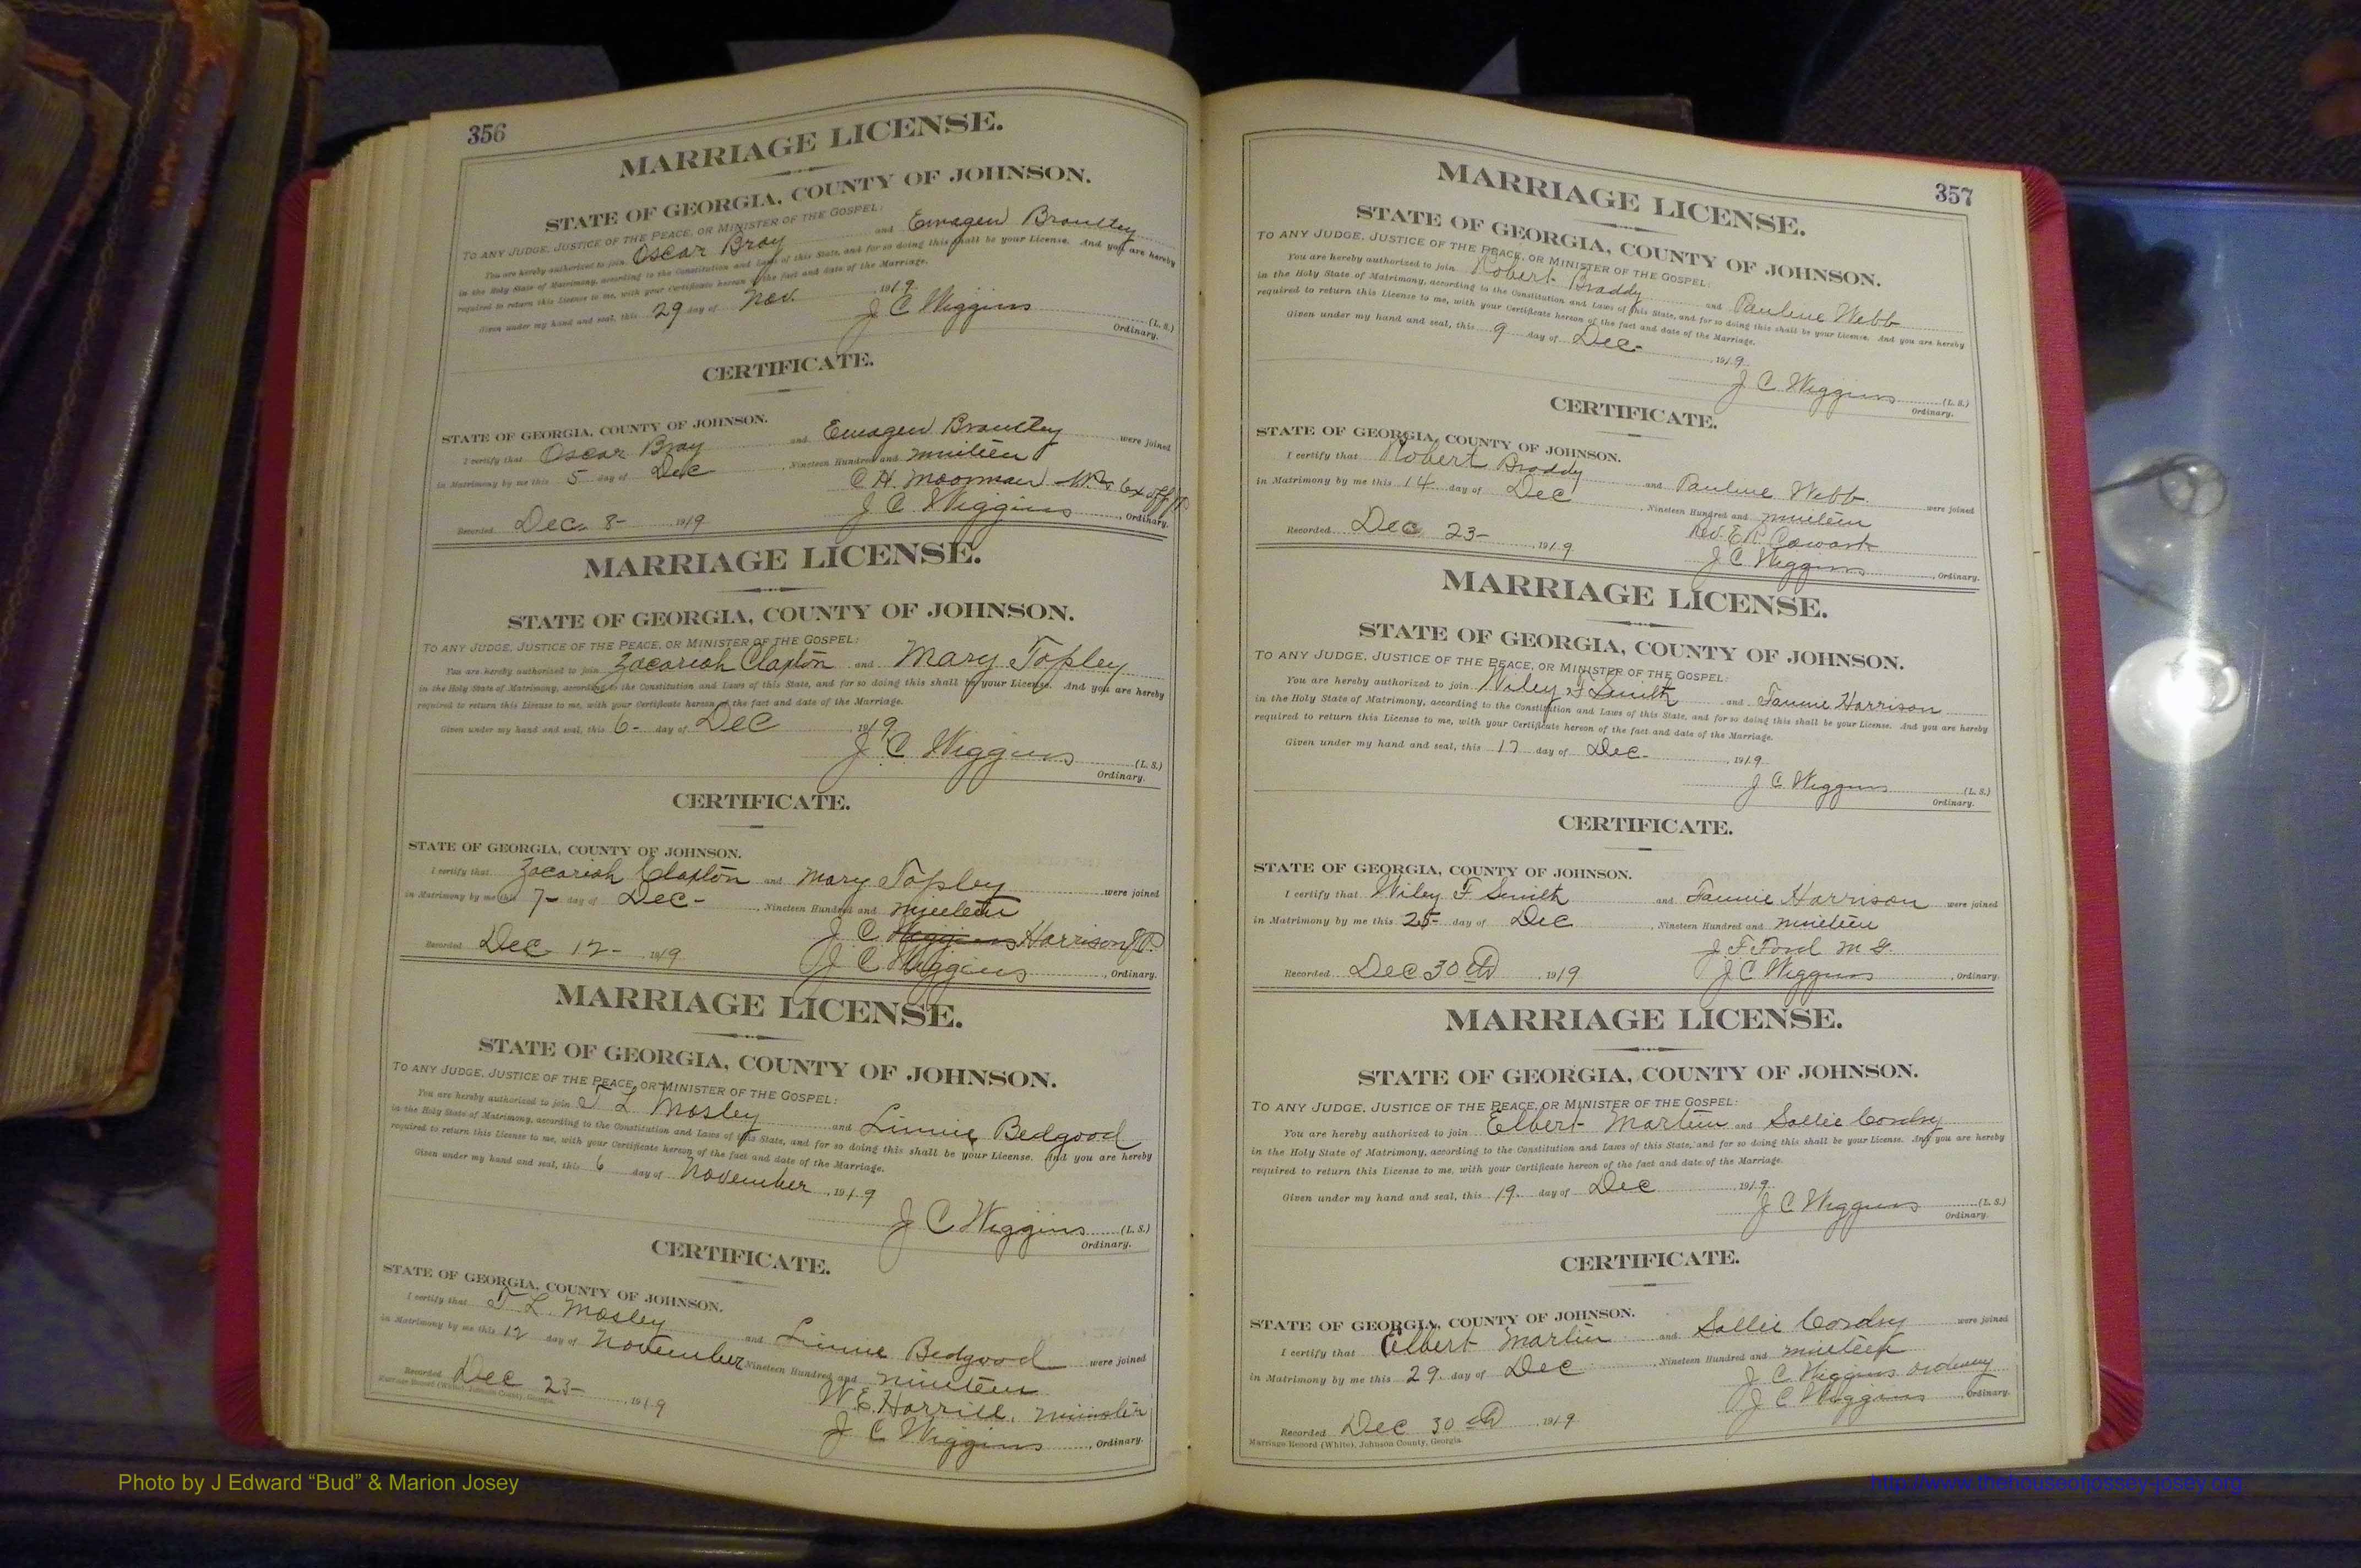 356
MARRIAGE LICENSE.
STATE OF GEORGIA, COUNTY OF JOHNSON.
TO ANY JUDGE, JUSTICE OF THE PEACE, OR MINISTER OF THE GOSPEL:
You are hereby authorized to join Oscar Bray and Emagen Brantley
in the Holy State of Matrimony, according to the Constitution and Laws of this State, and for so doing this shall be your License. And you are hereby
required to return this License to me, with your Certificate hereon of the fact and date of the Marriage.
Given under my hand and seal, this 29 day of Nov. 1919
J C Wiggins (L. S.)
Ordinary.
CERTIFICATE.
STATE OF GEORGIA, COUNTY OF JOHNSON.
I certify that Oscar Bray and Emagen Brantley were joined
in Matrimony by me this 5 day of Dec , Nineteen Hundred and nineteen
C H. Moorman
Recorded Dec. 8- 1919 J C Wiggins , Ordinary.
MARRIAGE LICENSE.
STATE OF GEORGIA, COUNTY OF JOHNSON.
TO ANY JUDGE, JUSTICE OF THE PEACE, OR MINISTER OF THE GOSPEL:
You are hereby authorized to join Zacariah Claxton and Mary Tapley
in the Holy State of Matrimony, according to the Constitution and Laws of this State, and for so doing this shall be your License. And you are hereby
required to return this License to me, with your Certificate hereon of the fact and date of the Marriage.
Given under my hand and seal, this 6- day of Dec 1919
J C Wiggins (L. S.)
Ordinary.
CERTIFICATE.
STATE OF GEORGIA, COUNTY OF JOHNSON.
I certify that Zacariah Claxton and Mary Tapley were joined
in Matrimony by me this 7- day of Dec- , Nineteen Hundred and nineteen
J C Wiggins Harrison J.P.
Recorded Dec- 12- 1919 J C Wiggins , Ordinary.
MARRIAGE LICENSE.
STATE OF GEORGIA, COUNTY OF JOHNSON.
TO ANY JUDGE, JUSTICE OF THE PEACE, OR MINISTER OF THE GOSPEL:
You are hereby authorized to join T L Mosley and Linnie Bedgood
in the Holy State of Matrimony, according to the Constitution and Laws of this State, and for so doing this shall be your License. And you are hereby
required to return this License to me, with your Certificate hereon of the fact and date of the Marriage.
Given under my hand and seal, this 6 day of November , 1919
J C Wiggins (L. S.)
Ordinary.
CERTIFICATE.
STATE OF GEORGIA, COUNTY OF JOHNSON.
I certify that T L Mosley and Linnie Bedgood were joined
in Matrimony by me this 12 day of November Nineteen Hundred and nineteen
W. E. Harrill, minister
Recorded Dec 23- 1919 J C Wiggins , Ordinary.
Marriage Record (White), Johnson County, Georgia.
357
MARRIAGE LICENSE.
STATE OF GEORGIA, COUNTY OF JOHNSON.
TO ANY JUDGE, JUSTICE OF THE PEACE, OR MINISTER OF THE GOSPEL:
You are hereby authorized to join Robert Braddy and Pauline Webb
in the Holy State of Matrimony, according to the Constitution and Laws of this State, and for so doing this shall be your License. And you are hereby
required to return this License to me, with your Certificate hereon of the fact and date of the Marriage.
Given under my hand and seal, this 9 day of Dec- 1919
J C Wiggins (L. S.)
Ordinary.
CERTIFICATE.
STATE OF GEORGIA, COUNTY OF JOHNSON.
I certify that Robert Braddy and Pauline Webb were joined
in Matrimony by me this 14 day of Dec , Nineteen Hundred and nineteen
Rev. E R Cowart
Recorded Dec 23- 1919 J C Wiggins , Ordinary.
MARRIAGE LICENSE.
STATE OF GEORGIA, COUNTY OF JOHNSON.
TO ANY JUDGE, JUSTICE OF THE PEACE, OR MINISTER OF THE GOSPEL:
You are hereby authorized to join Wiley F Smith and Fannie Harrison
in the Holy State of Matrimony, according to the Constitution and Laws of this State, and for so doing this shall be your License. And you are hereby
required to return this License to me, with your Certificate hereon of the fact and date of the Marriage.
Given under my hand and seal, this 17 day of Dec- , 1919
J C Wiggins (L. S.)
Ordinary.
CERTIFICATE.
STATE OF GEORGIA, COUNTY OF JOHNSON.
I certify that Wiley F Smith and Fannie Harrison were joined
in Matrimony by me this 25- day of Dec , Nineteen Hundred and nineteen
J F Ford M G.
Recorded Dec 30th , 1919 J C Wiggins , Ordinary.
MARRIAGE LICENSE.
STATE OF GEORGIA, COUNTY OF JOHNSON.
TO ANY JUDGE, JUSTICE OF THE PEACE, OR MINISTER OF THE GOSPEL:
You are hereby authorized to join Elbert Martin and Sallie Cordry
in the Holy State of Matrimony, according to the Constitution and Laws of this State, and for so doing this shall be your License. And you are hereby
required to return this License to me, with your Certificate hereon of the fact and date of the Marriage.
Given under my hand and seal, this 19. day of Dec 1919
J C Wiggins (L. S.)
Ordinary.
CERTIFICATE.
STATE OF GEORGIA, COUNTY OF JOHNSON.
I certify that Elbert Martin and Sallie Cordry were joined
in Matrimony by me this 29. day of Dec , Nineteen Hundred and nineteen
J C Wiggins ordinary
Recorded Dec 30th 1919 J C Wiggins , Ordinary.
Marriage Record (White), Johnson County, Georgia.
Photo by J Edward “Bud” & Marion Josey
http://www.thehouseofjossey-josey.org